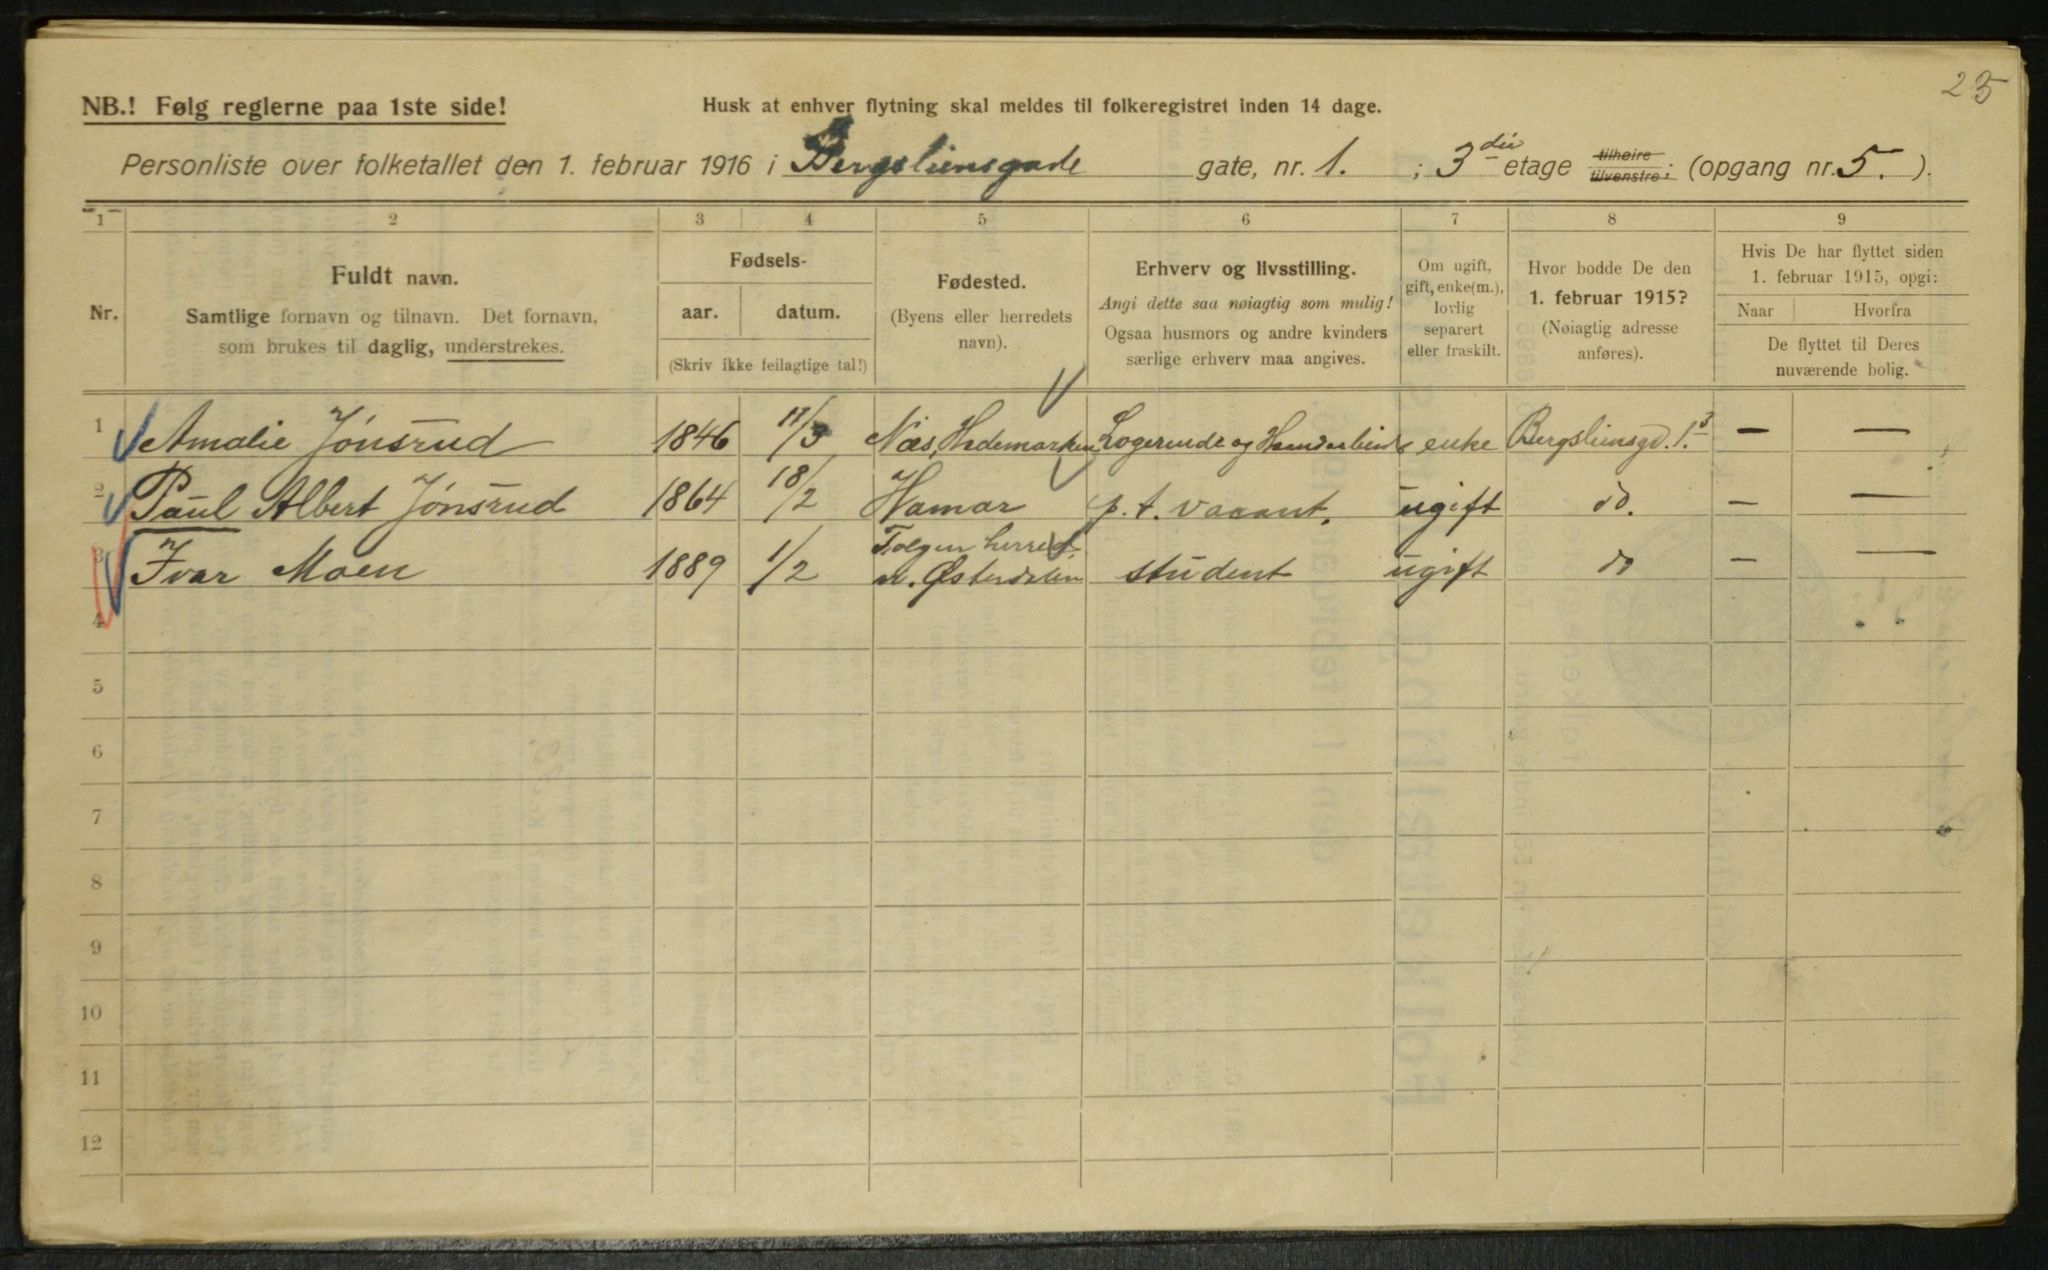 25
NB.! Følg reglerne paa 1ste side!
Husk at enhver flytning skal meldes til folkeregistret inden 14 dage.
Personliste over folketallet den 1. februar 1916 i Bergsliensgade gate, nr. 1. ; 3die etage tilhøire tilvenstre; (opgang nr. 5. ).
1 2 3 4 5 6 7 8 9
Nr.
Fuldt navn.
Samtlige fornavn og tilnavn. Det fornavn,
som brukes til daglig, understrekes.
Fødsels-
aar. datum.
(Skriv ikke feilagtige tal!)
Fødested.
(Byens eller herredets
navn).
Erhverv og livsstilling.
Angi dette saa nøiagtig som mulig!
Ogsaa husmors og andre kvinders
særlige erhverv maa angives.
Om ugift,
gift, enke(m.),
lovlig
separert
eller fraskilt.
Hvor bodde De den
1. februar 1915?
(Nøiagtig adresse
anføres).
Hvis De har flyttet siden
1. februar 1915, opgi:
Naar Hvorfra
De flyttet til Deres
nuværende bolig.
1 Amalie Jónsrud 1846 11/3 Næs, Hedemarken Logerende og Haandarbeide enke Bergsliensgd. 1.3 — —
2 Paul Albert Jónsrud 1864 18/2 Hamar p.t. vacant. ugift do. — —
3 Ivar Moen 1889 1/2 Tolgen herred, n. Østerdalen student ugift do — —
4
5
6
7
8
9
10
11
12